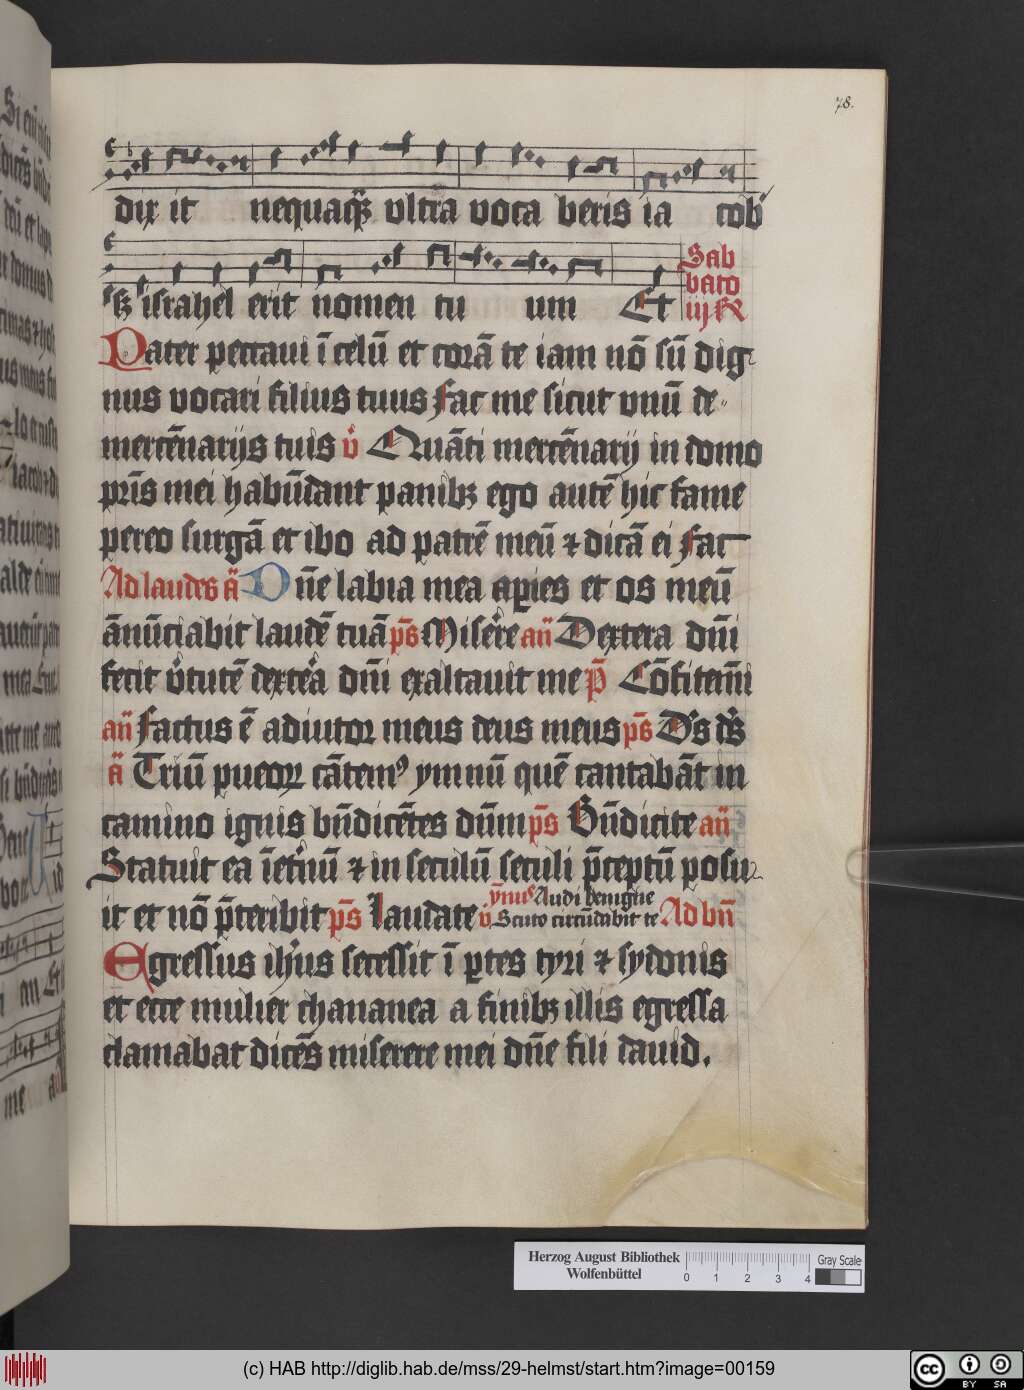 78.
dix it nequaq̃ vltra voca beris ia cob
sꝫ israhel erit nomen tu um Et
Sab
bato
iij R
Pater peccaui ī celū et corā te iam nō sū dig-
nus vocari filius tuus fac me sicut vnū de
mercēnarijs tuis v̊ Quāti mercēnarij in domo
pr̄is mei habūdant panibꝫ ego autē hic fame
pereo surgā et ibo ad patrē meū ⁊ dicā ei fac
Ad laudes ā Dn̄e labia mea aꝑies et os meū
ānūciabit laudē tuā ps̄ Misere̊ an̄ Dextera dn̄i
fecit v̊tutē dexte̊a dn̄i exaltauit me p̄ Cōfitemi̅
an̄ Factus ē adiutor meus deus meus ps̄ Ds̄ ds̄
ā Triū pueoꝝ cātemꝰ ymnū quē cantabāt in
camino ignis bn̄dicētes dn̄m ps̄ Bn̄dicite an̄
Statuit ea īetn̊ū ⁊ in seculū seculi p̄ceptū posu-
it et nō p̄teribit ps̄ Laudate ȳnus Audi benigne
v̊ Scuto circūdabit te Ad bn̄
Egressus ihūs secessit ī ꝑtes tyri ⁊ sydonis
et ecce mulier chananea a finibꝫ illis egressa
clamabat dicēs miserere mei dn̄e fili dauid.
Herzog August Bibliothek
Wolfenbüttel
0 1 2 3 4
Gray Scale
(c) HAB http://diglib.hab.de/mss/29-helmst/start.htm?image=00159
cc BY SA